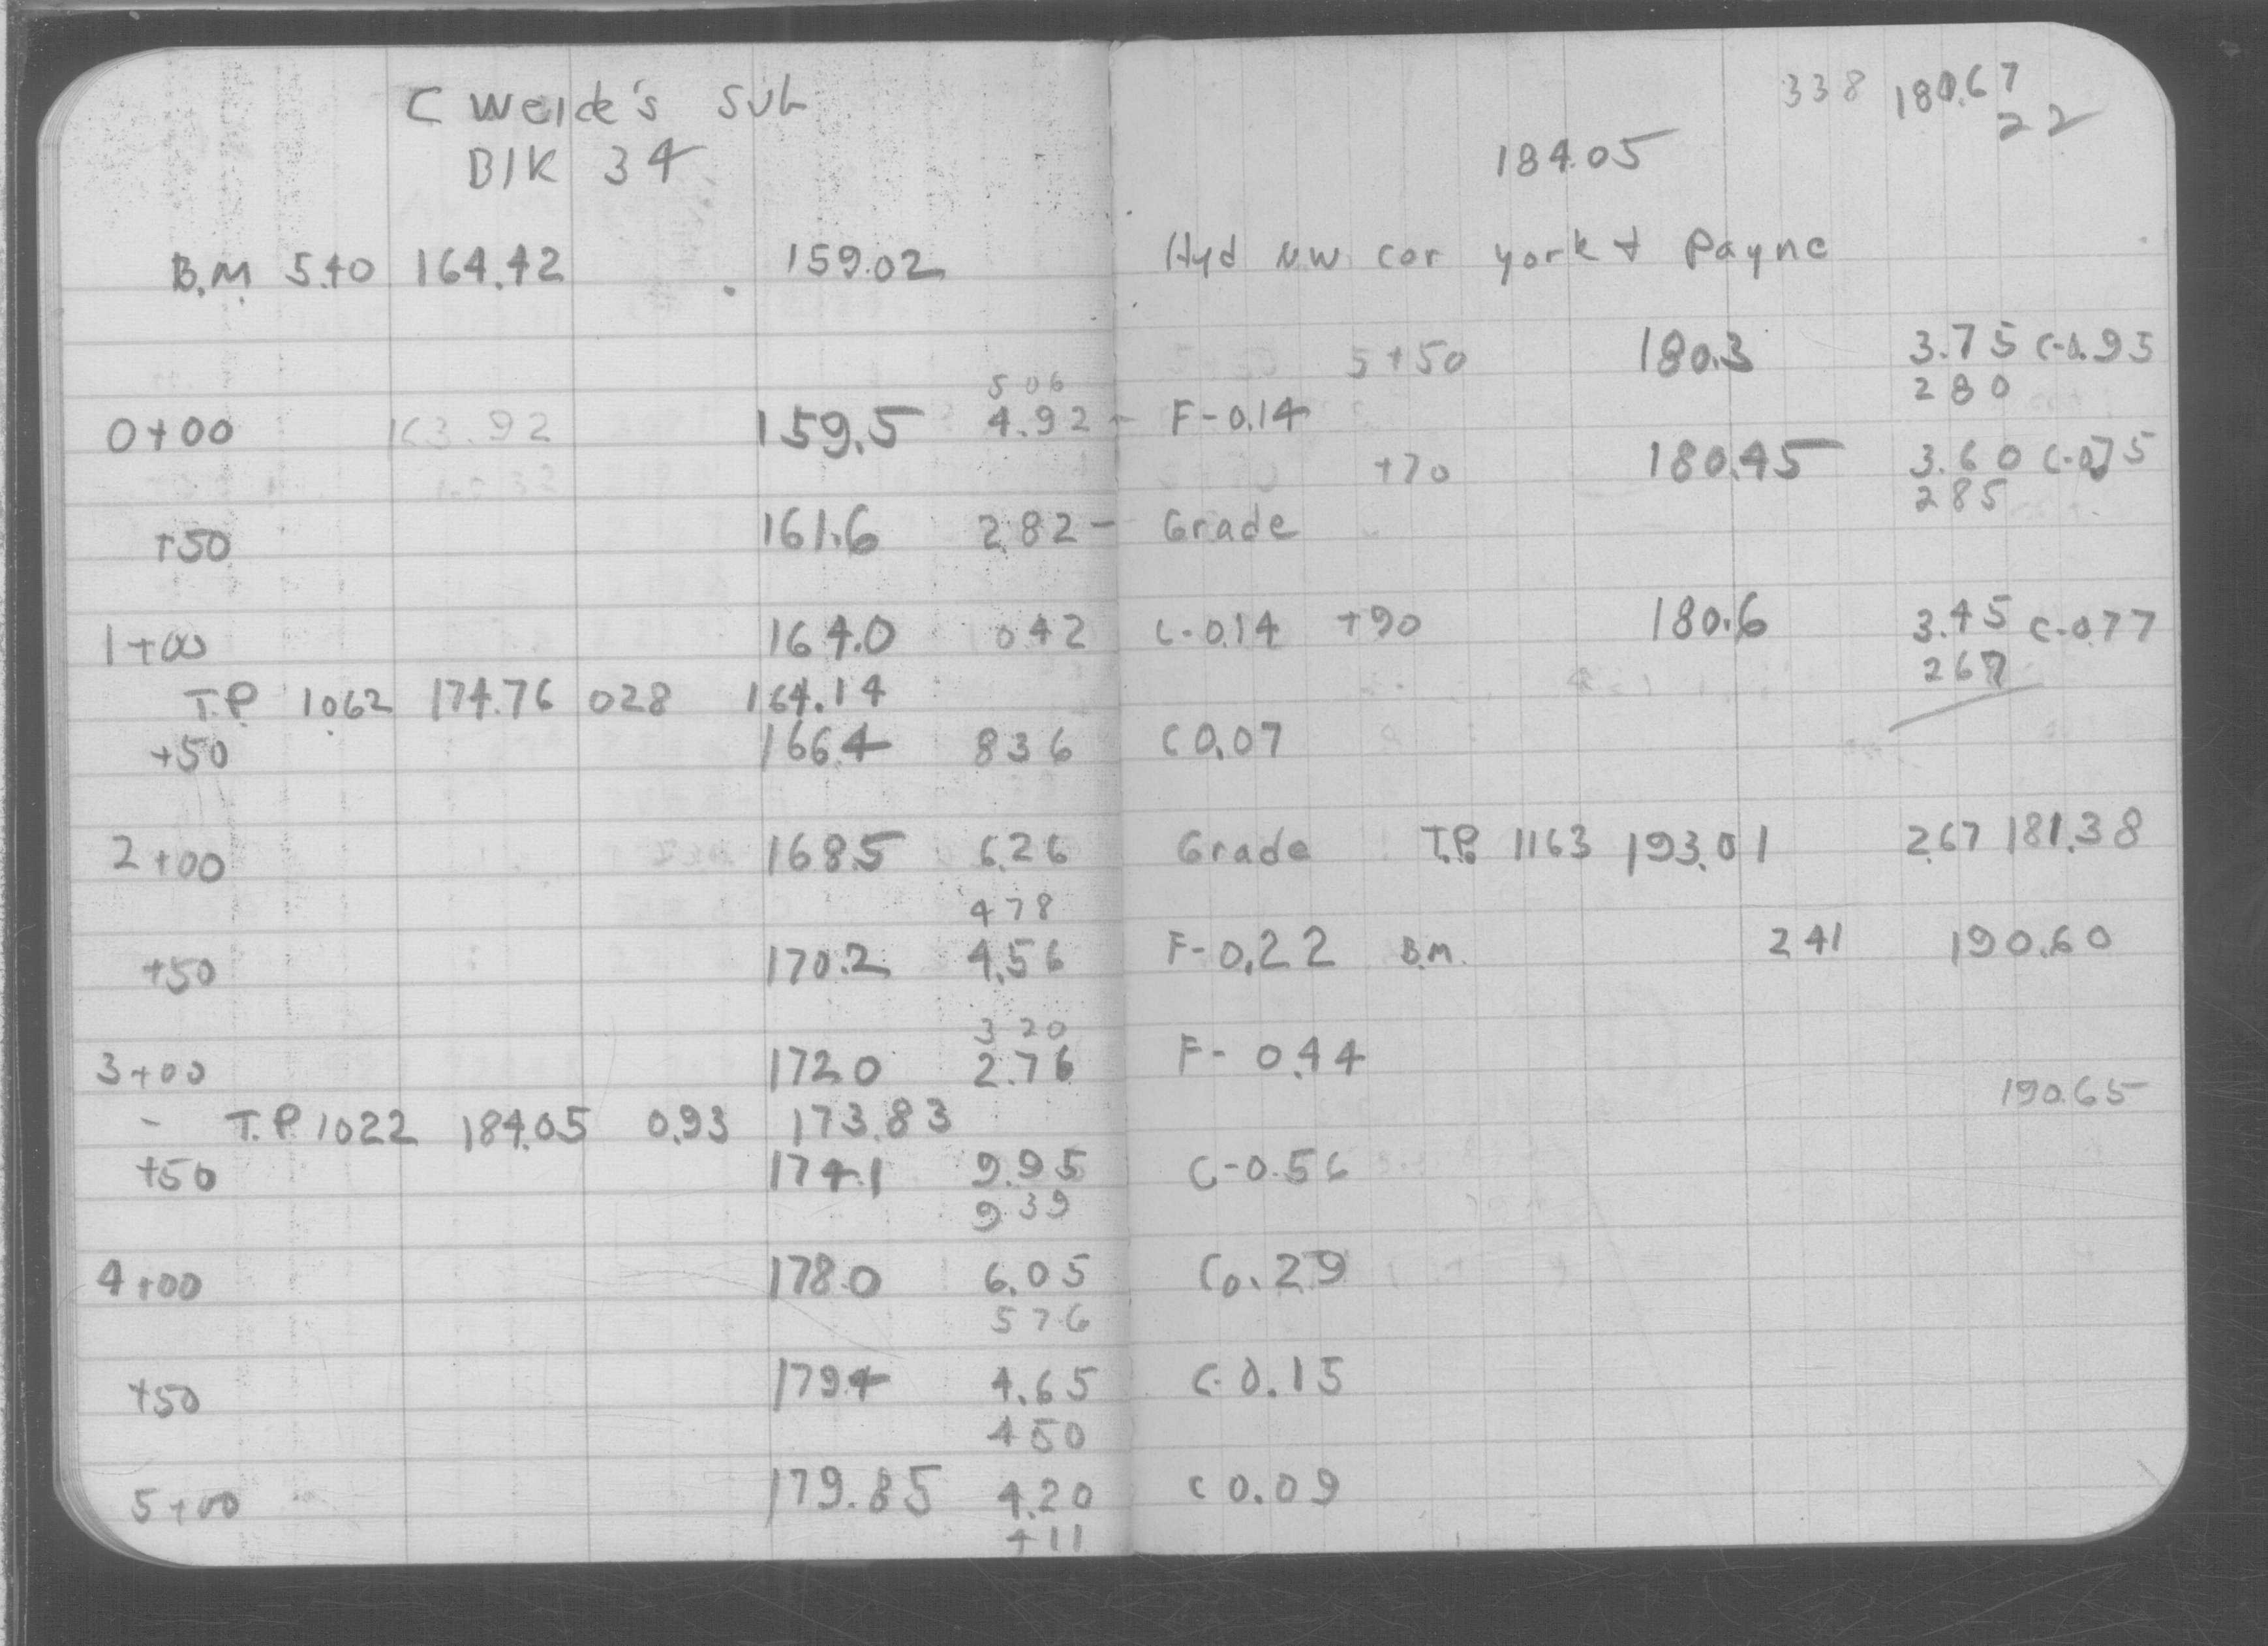 C Weide's Sub
Blk 34
B.M. 5.40 164.42 159.02
506
0+00 163.92 159.5 4.92 -
+50 161.6 2.82 -
1+00 164.0 042
T.P. 1062 174.76 028 164.14
+50 166.4 836
2+00 168.5 6.26
478
+50 170.2 4.56
3 20
3+00 172.0 2.76
- T.P. 1022 184.05 0.93 173.83
+50 174.1 9.95
9 39
4+00 178.0 6.05
576
+50 179.4 4.65
450
5+00 179.85 4.20
+11
338 180.67
22
184.05
Hyd NW. cor york & Payne
5+50 180.3 3.75 C-0.95
280
F-0.14
+70 180.45 3.60 C-0.75
285
Grade
C-0.14 +90 180.6 3.45 C-0.77
267
C 0.07
Grade T.P. 1163 193.01 2.67 181.38
F-0.22 B.M. 241 190.60
F-0.44
190.65
C-0.56
C0.29
C-0.15
C 0.09